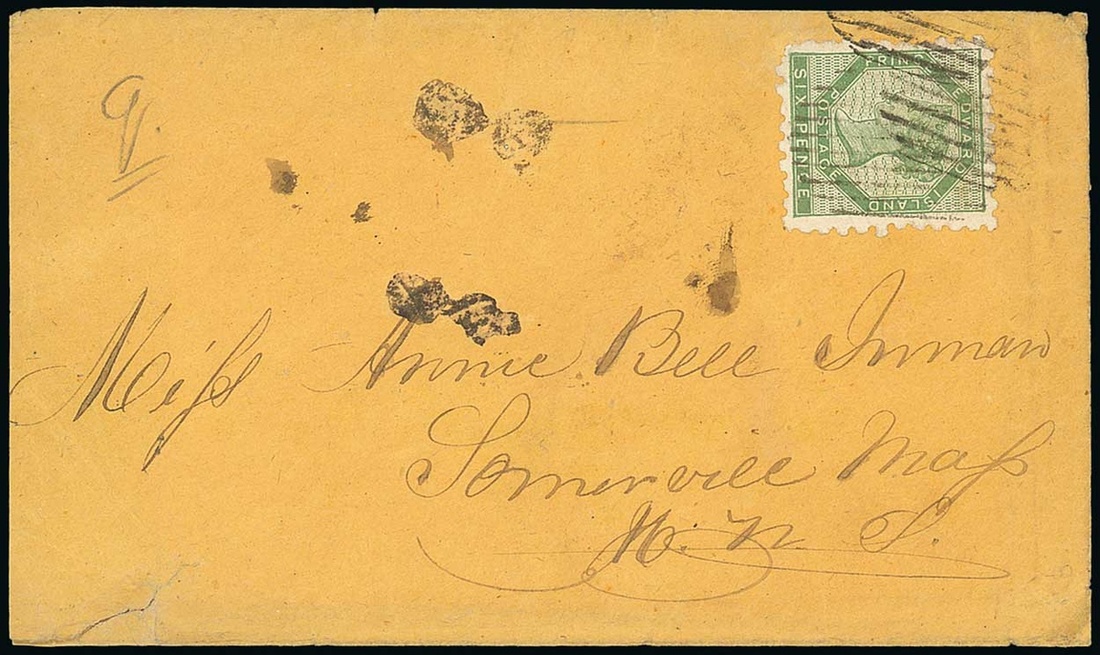 PRINCE EDWARD ISLAND
POSTAGE
SIX PENCE
Miſs Annie Bell Inman
Somerville Maſs
U. S.